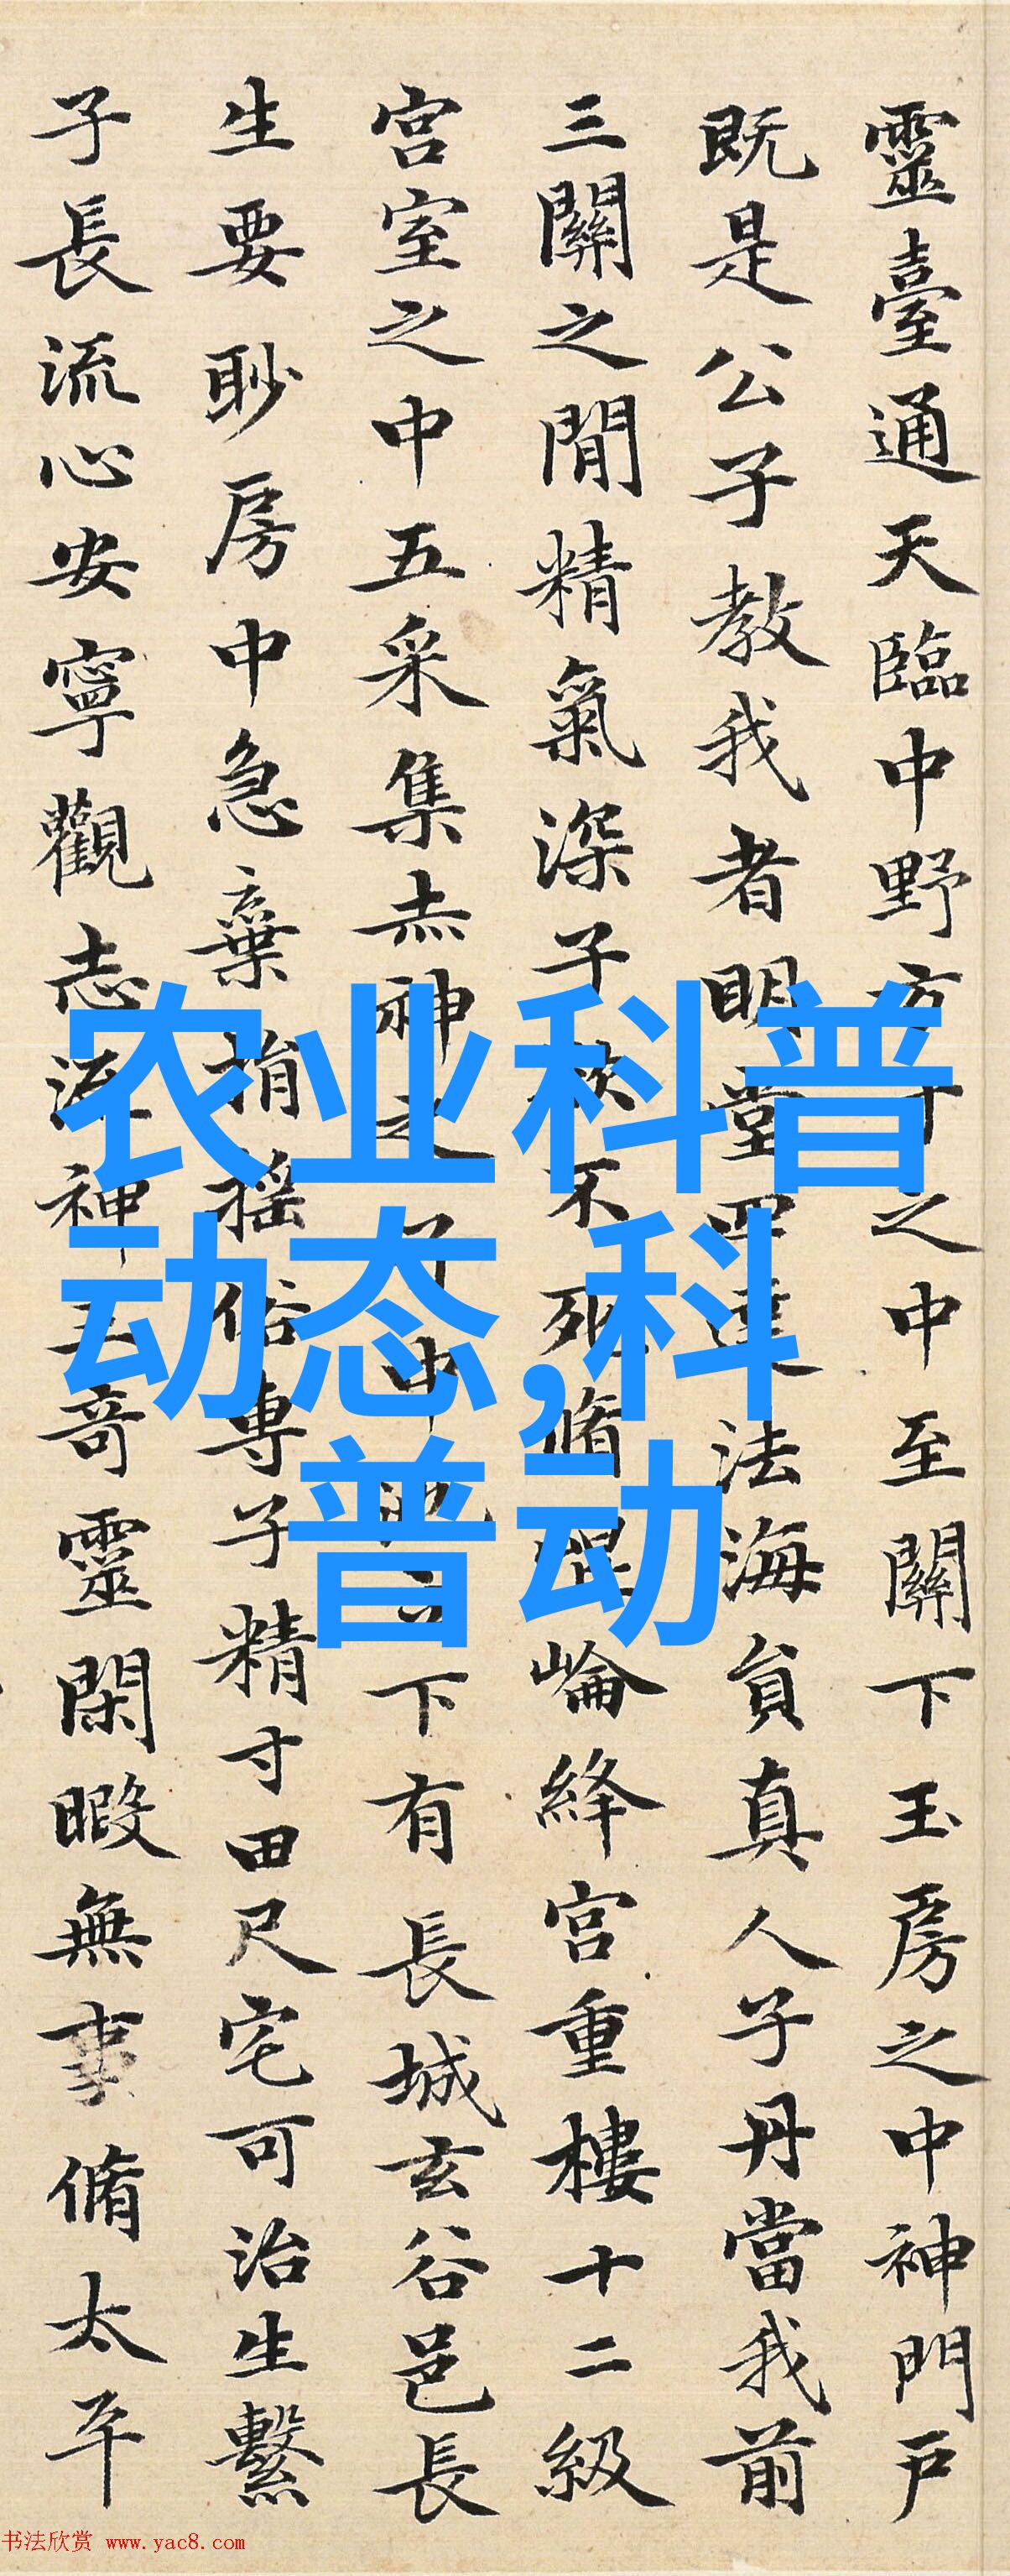 靈臺通天臨中野方寸之中至關下玉房之中神門戶
既是公子教我者明堂四達法海員真人子丹當我前
三關之閒精氣深子欲不死脩崐崘絳宫重樓十二級
宫室之中五采集赤神之子中池立下有長城玄谷邑長
生要眇房中急棄捐摇俗專子精寸田尺宅可治生繫
子長流心安寧觀志流神三奇靈閑暇無事脩太平
农业科普
动态,科
普动
书法欣赏 www.yac8.com